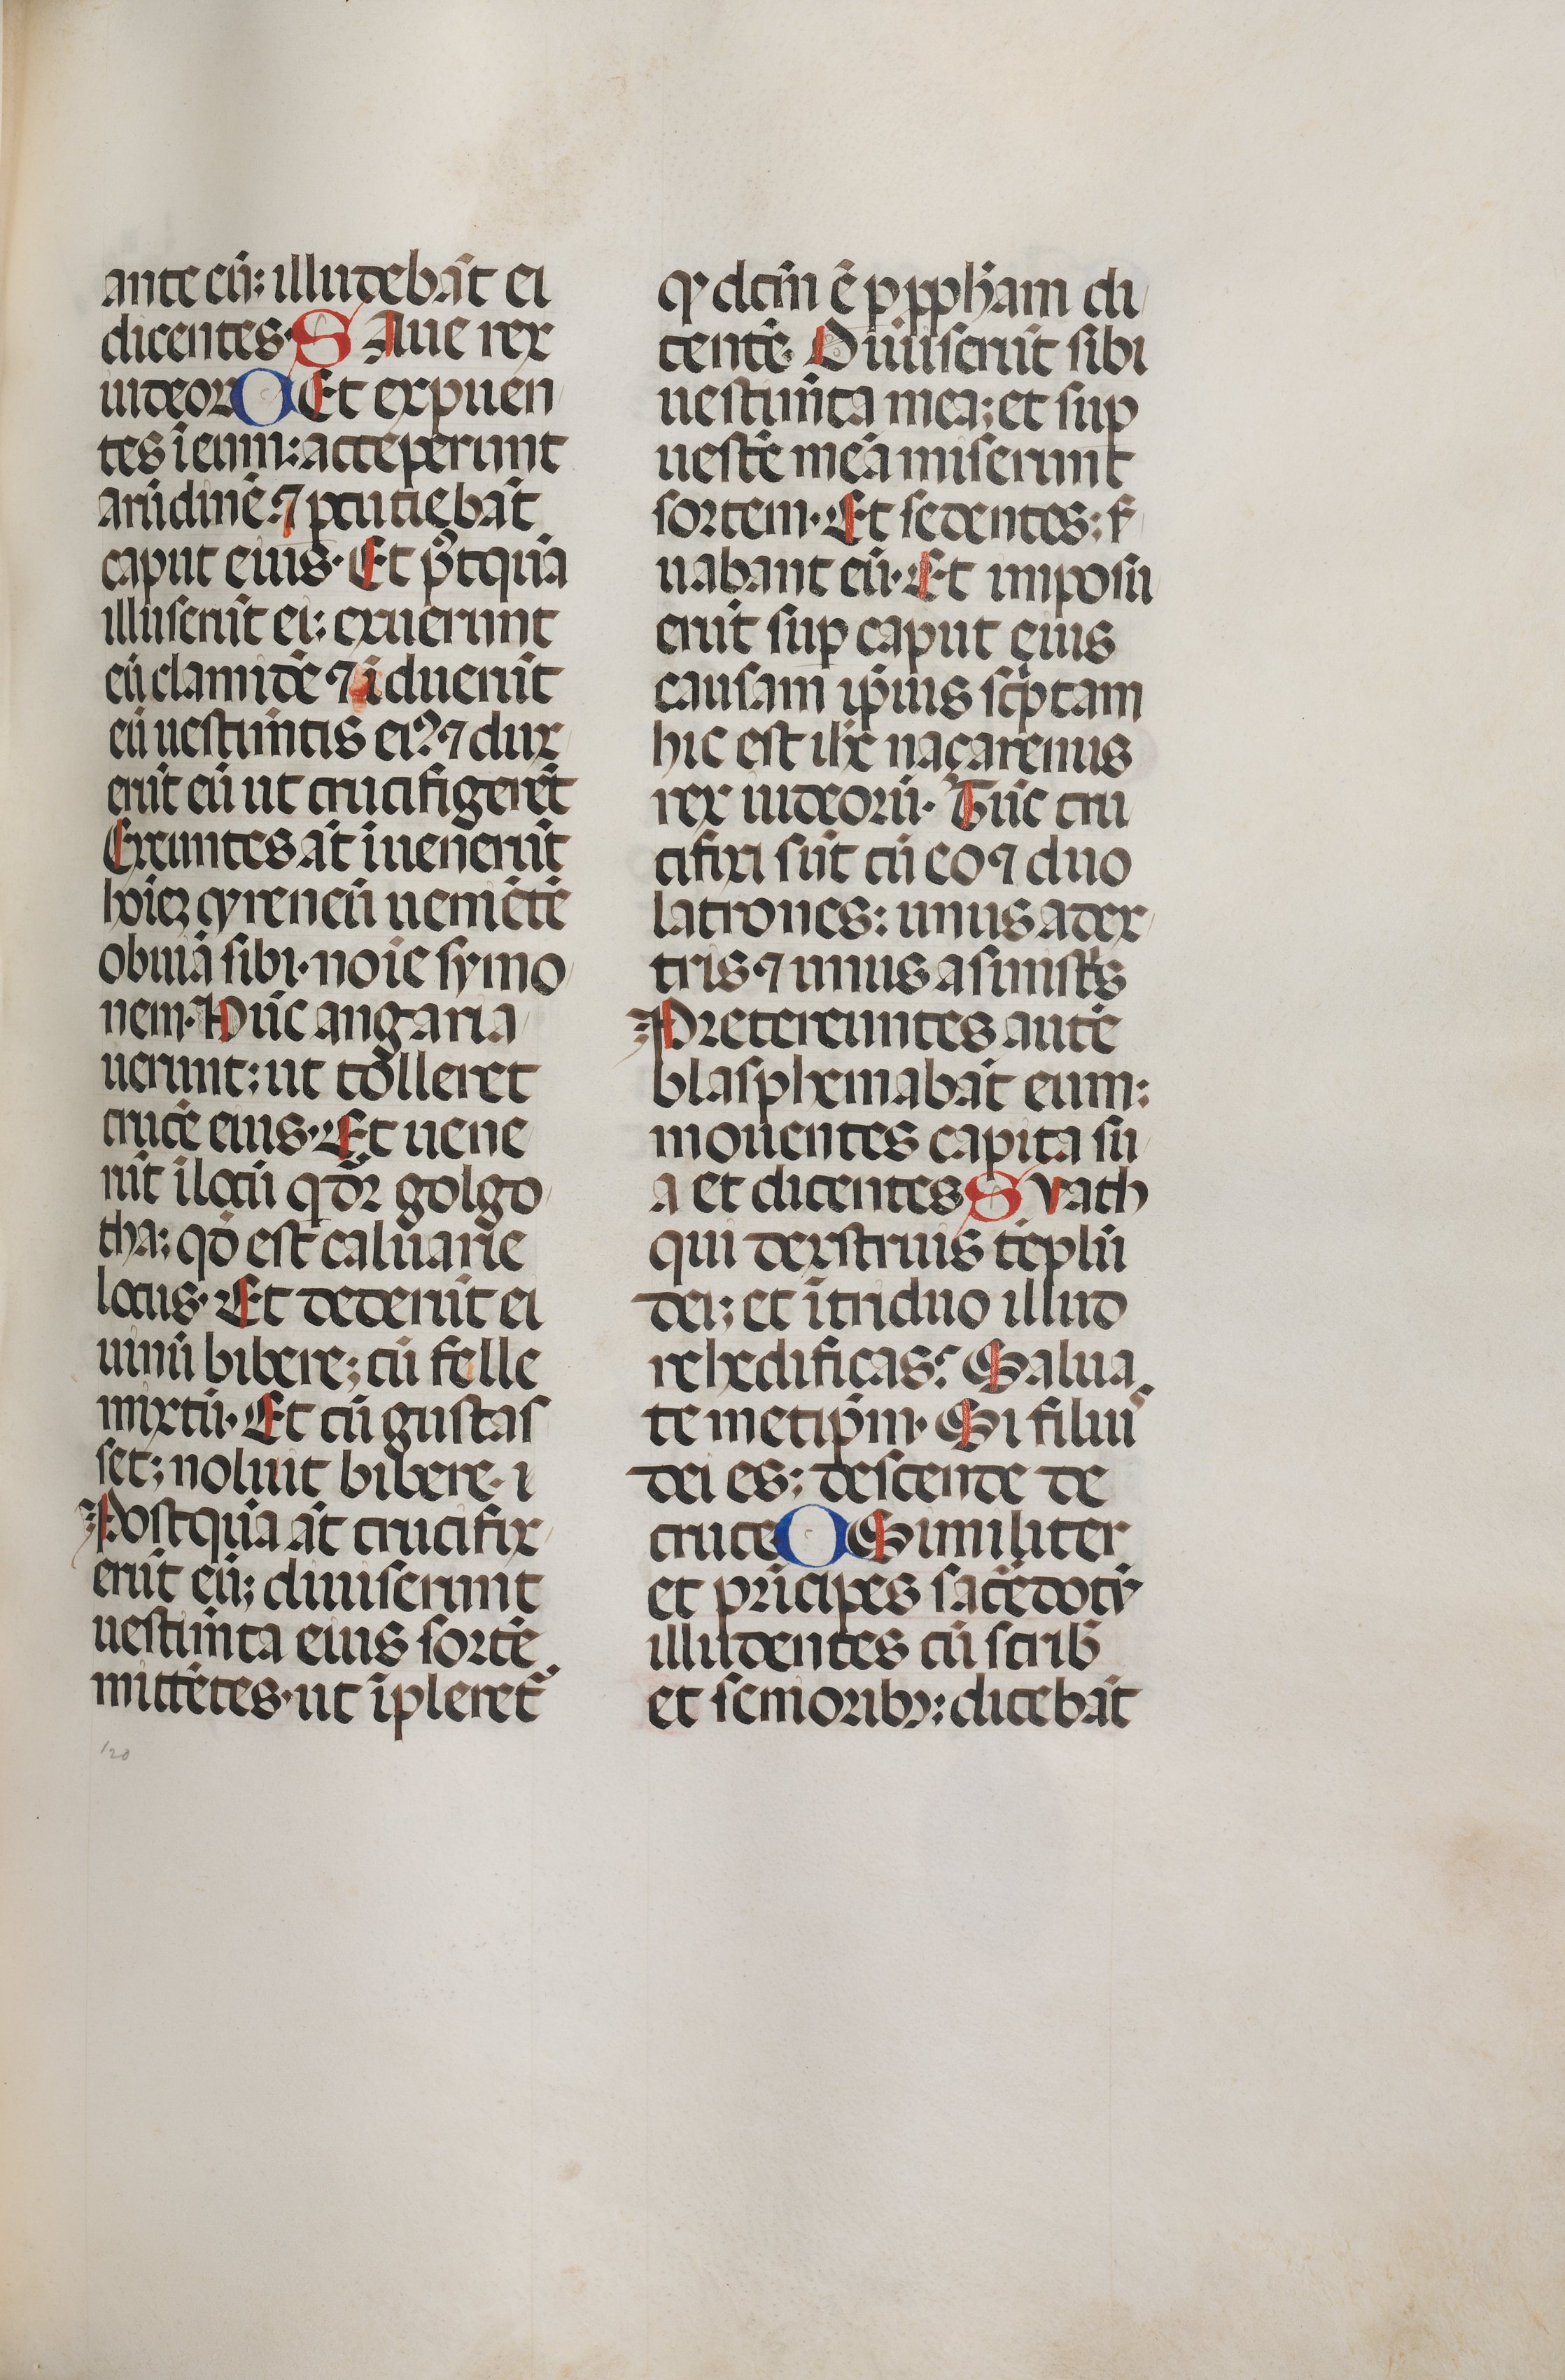 ante eū: illudebāt ei
dicentes· S Aue rex
iudeoꝝ O Et expuen
tes ī eum: acceperunt
arūdinē. ⁊ ꝑcutiebāt
caput eius· Et p̄tquā
illuserūt ei: exuerunt
eū clamidē ⁊ īduerūt
eū uestim̄tis eiꝰ: ⁊ dux
erūt eū ut crucifigerēt
Exeuntes āt īuenerūt
hoīeꝫ cyreneū ueniētē
obuiā sibi· noīe symo
nem· Hūc angaria
uerunt: ut tolleret
crucē eius· Et uene
rūt ī locū qd̄r golgo
tha; qd̄ est caluarie
locus· Et dederūt ei
uinū bibere; cū felle
mixtū· Et cū gustas
set; noluit bibere· i
Postquā āt crucifix
erūt eū; diuiserunt
uestim̄ta eius sortē
mittētes· ut īpleret᷑
qꝰ dcm̄ ē ꝑ ꝓpħam di
centē· Diuiserūt sibi
uestim̄ta mea; et suꝑ
uestē meā miserunt
sortem· Et sedentes: ẜ
uabant eū· Et imposu
erūt suꝑ caput eius
causam ip̄ius sc̄ptam
hic est ihc̄ naçarenus
rex iudeorū· Tūc cru
cifixi sūt cū eo ⁊ duo
latrones: unus a dex
tris ⁊ unus a sinist̄s
Pretereuntes autē
blasphemabāt eum:
mouentes capita su
a et dicentes S vath
qui dexstruis tēplū
dei; et ī triduo illud
rehedificas: Salua
temetip̄m· Si filiuˢ
dei es: descende de
cruce O Similiter
et prīcipes sac̄dotū
illudentes cū scrib̄
et senioribꝫ: dicebāt
120